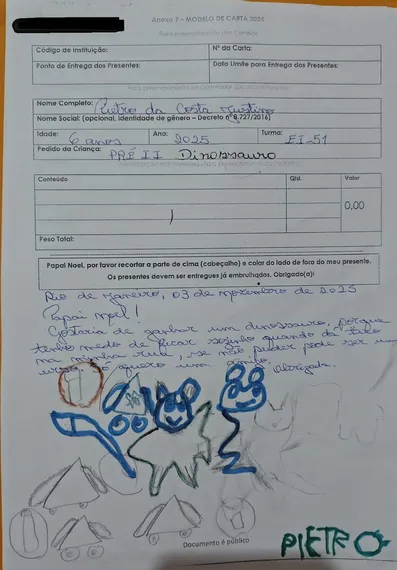 Anexo 7 – MODELO DE CARTA 2025
Código da Instituição:
Nº da Carta:
Ponto de Entrega dos Presentes:
Data Limite para Entrega dos Presentes:
Nome Completo: Pietro da Costa Justino
Nome Social: (opcional, identidade de gênero – Decreto nº 8.727/2016)
Idade: 6 anos Ano: 2025 Turma: EI-51
Pedido da Criança: PRÉ II Dinossauro
Conteúdo Qtd. Valor
0,00
Peso Total:
Papai Noel, por favor recortar a parte de cima (cabeçalho) e colar do lado de fora do meu presente.
Os presentes devem ser entregues já embrulhados. Obrigado(a)!
Rio de Janeiro, 03 de novembro de 2025
Papai noel!
Gostaria de ganhar um dinossauro, porque
tenho medo de ficar sozinho quando dá tiro
na minha rua, se não puder pode ser um
urso. Só quero um amigo.
Obrigada.
Documento é público
PIETRO